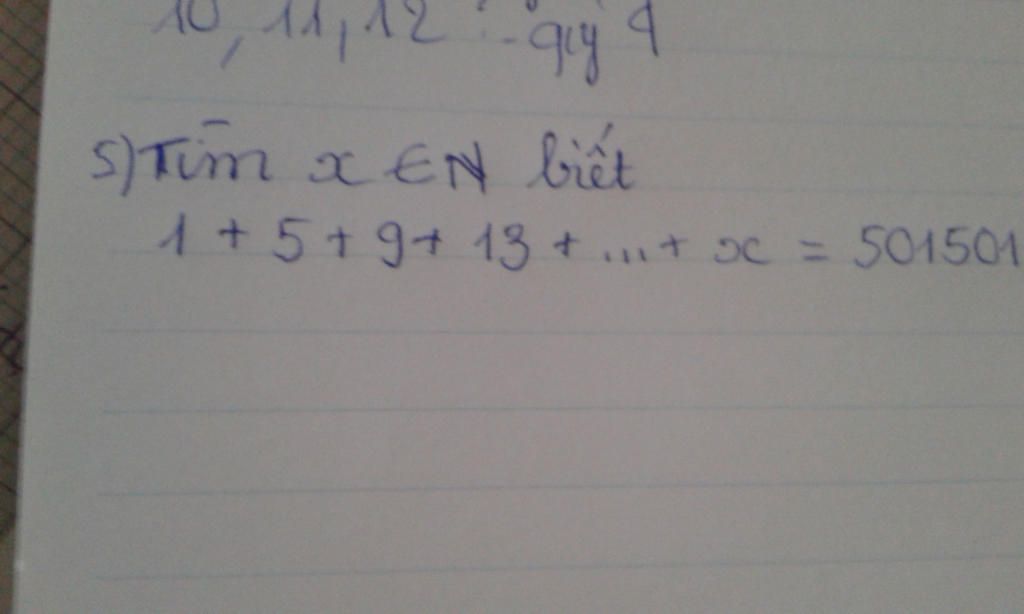 10, 11, 12 : - quý 4
5) Tìm x ∈ N biết
1 + 5 + 9 + 13 + ... + x = 501501